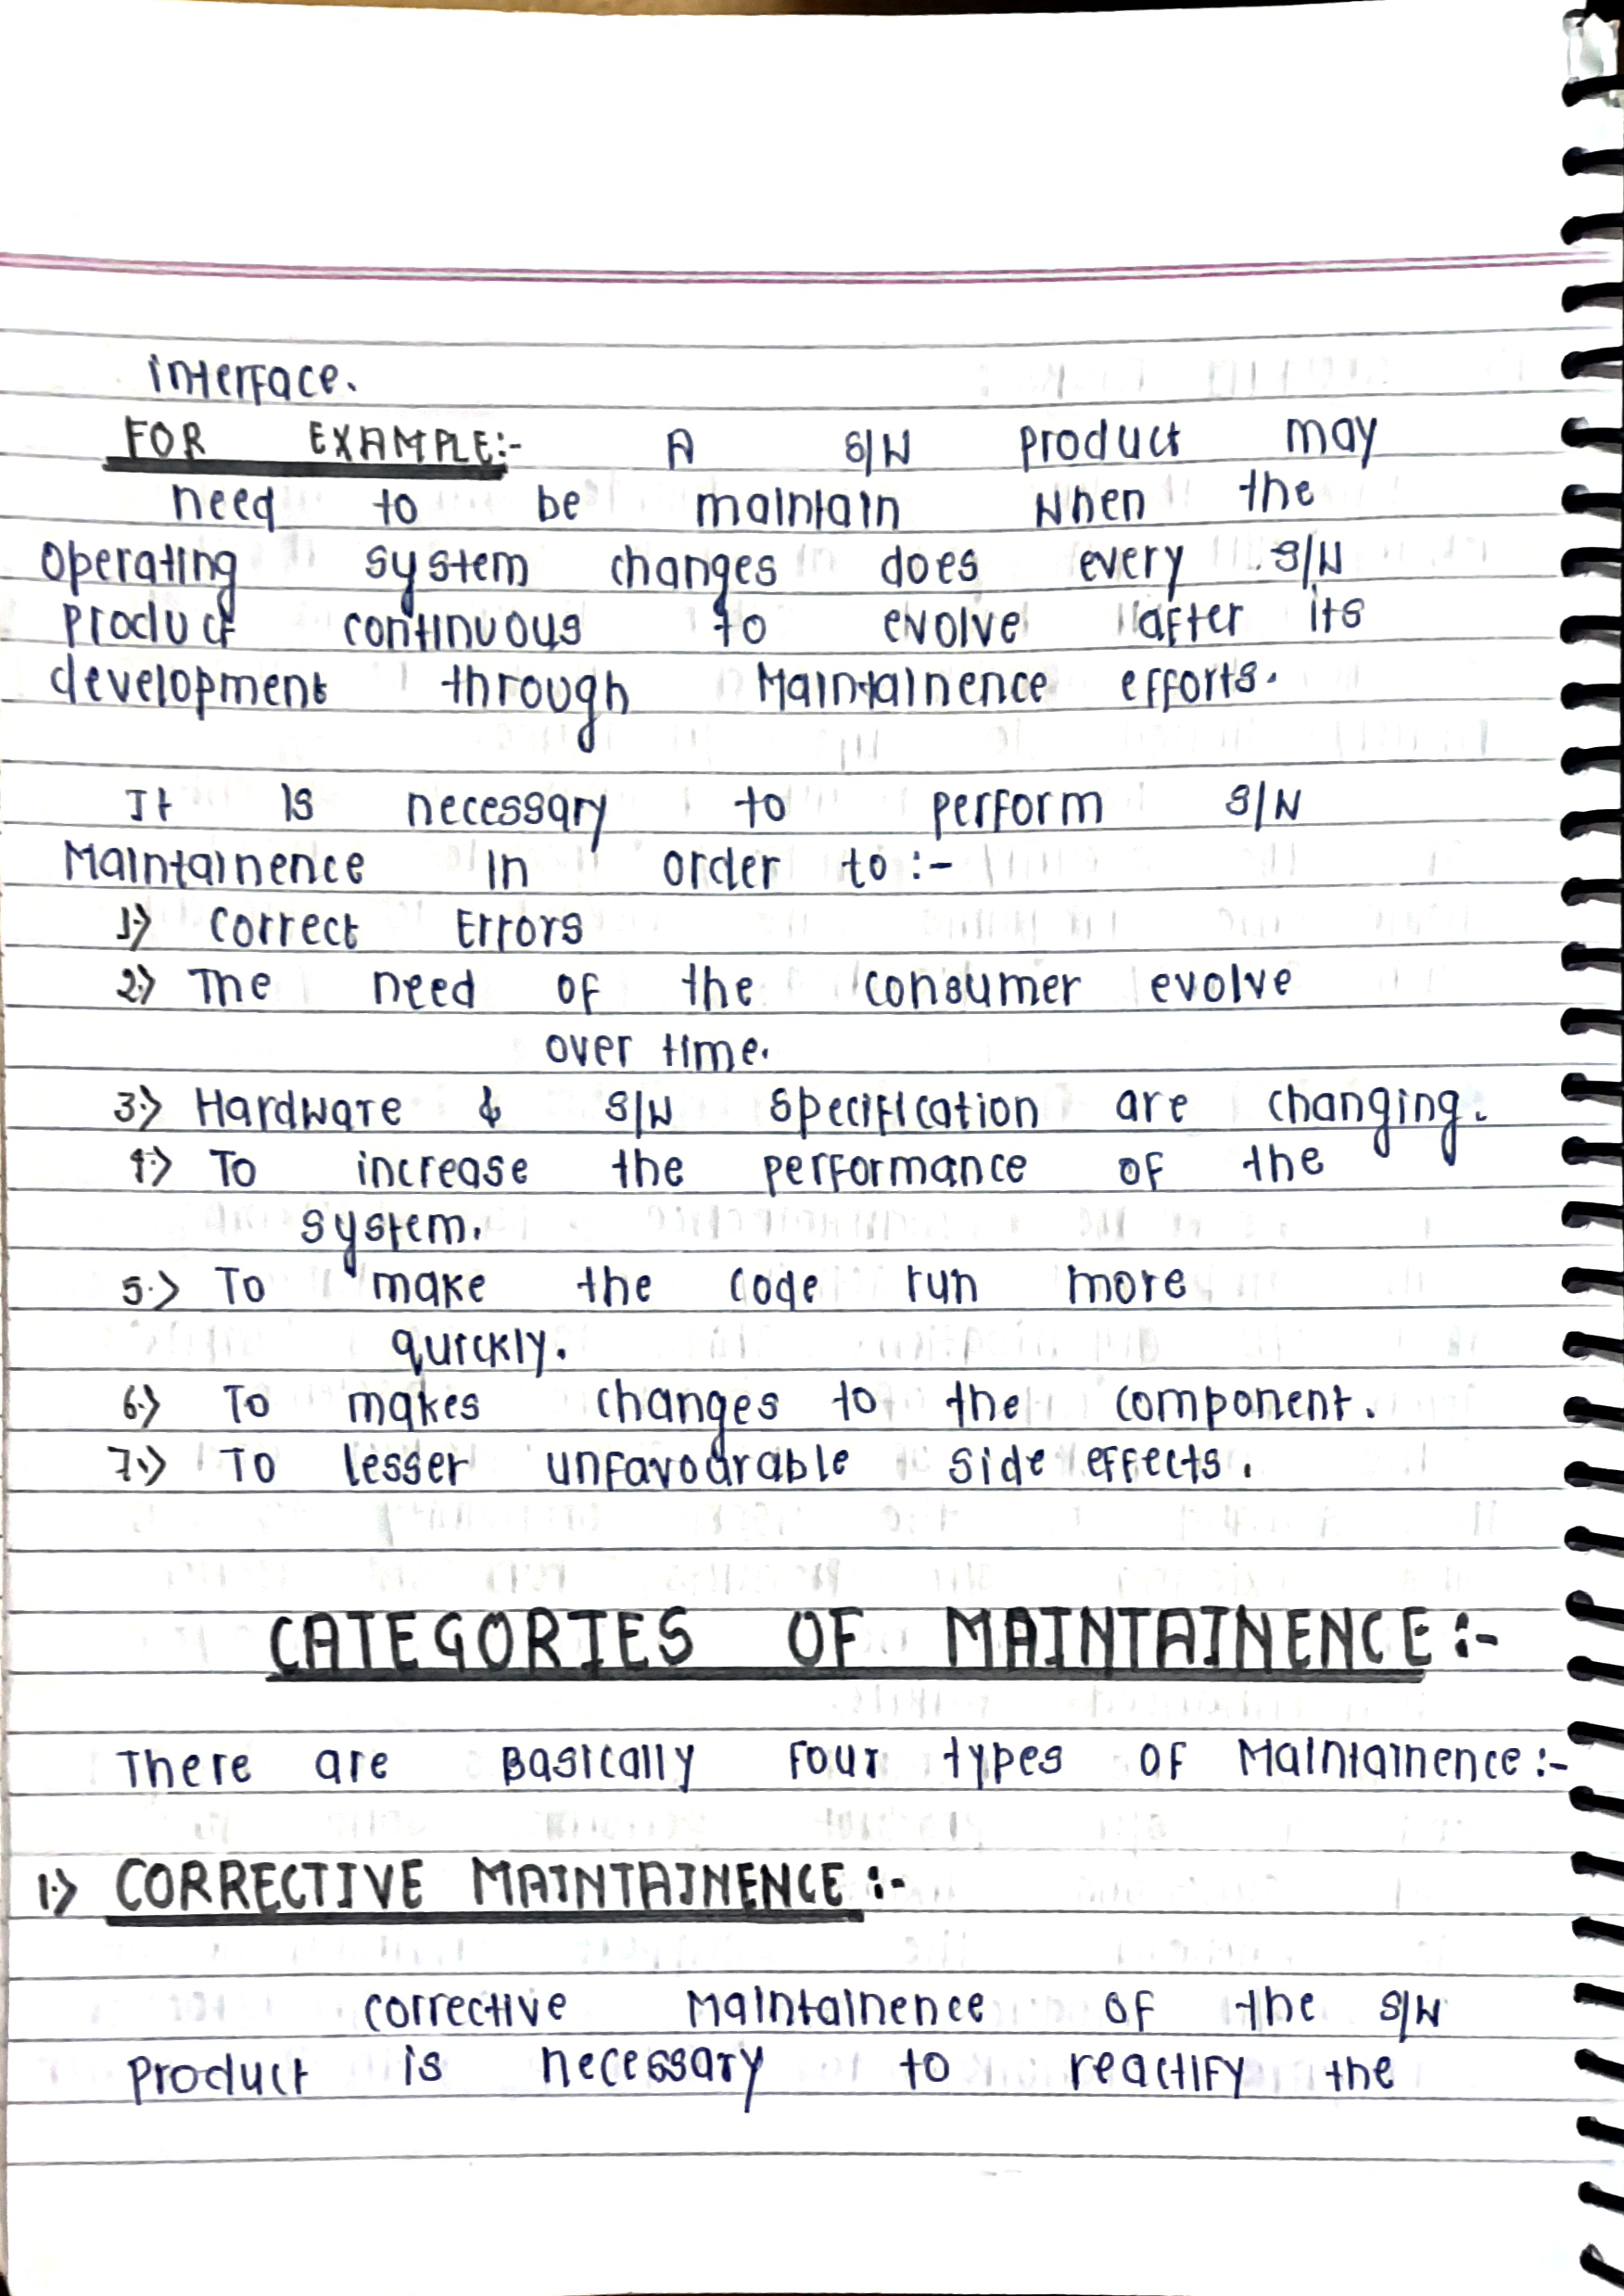 interface.
FOR EXAMPLE:- A S/W product may
need to be maintain when the
operating system changes does every S/W
product continuous to evolve after its
development through Maintainence efforts.
It is necessary to perform S/W
Maintainence in order to:-
1.) Correct Errors
2.) The need of the consumer evolve
over time.
3.) Hardware & S/W specification are changing.
4.) To increase the performance of the
system.
5.) To make the code run more
quickly.
6.) To makes changes to the component.
7.) To lesser unfavourable side effects.
CATEGORIES OF MAINTAINENCE:-
There are Basically four types of Maintainence:-
1.) CORRECTIVE MAINTAINENCE:-
corrective Maintainence of the S/W
product is necessary to reactify the